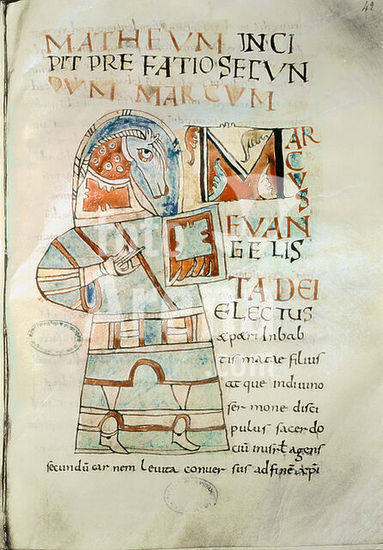 42
MATHEUM INCI
PIT PREFATIO SECUN
DUM MARCUM
MARCUS
EVAN
GELIS
TA DEI
ELECTUS
&petri in bab
tismatae filius
atque in diuino
sermone disci
pulus sacerdo
ciu in isrl agens
secundũ carnem leuita conuersus ad finẽ &xp̃i